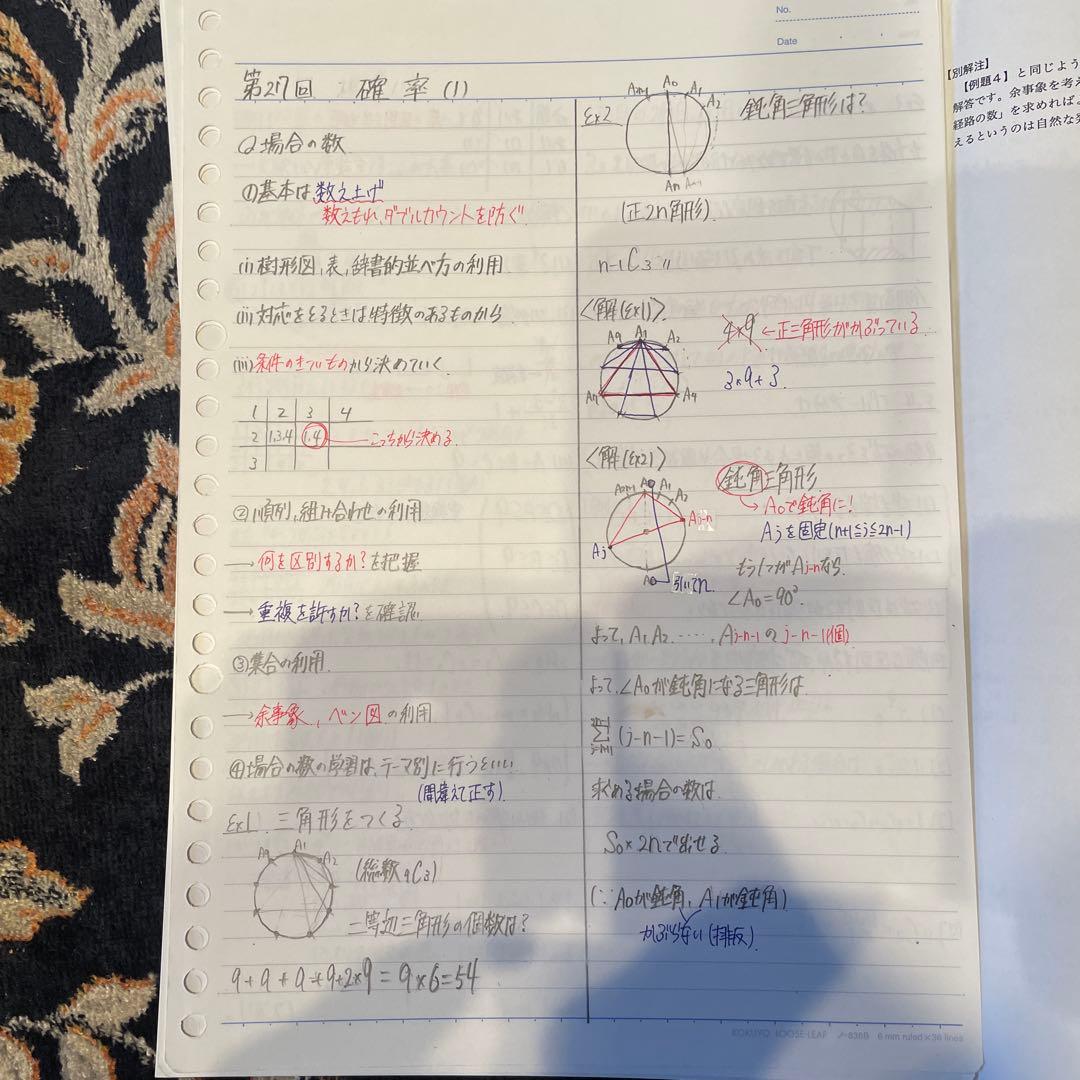 No.
Date
第27回 確率(1)
Q 場合の数
①基本は数え上げ
数えもれ、ダブルカウントを防ぐ
(i)樹形図、表、辞書的並べ方の利用
(ii)対応をとるときは特徴のあるものから
(iii)条件のきついものから決めていく
1 2 3 4
2 1.3.4 1.4 こっちから決める
3
②順列、組み合わせの利用
→何を区別するか?を把握
→重複を許すか?を確認
③集合の利用
→余事象、ベン図の利用
④場合の数の学習は、テーマ別に行うといい
(間違えて正す)
Ex1. 三角形をつくる
A9 A1 A2
(総数 9C3)
二等辺三角形の個数は?
9+9+9+9+2×9=9×6=54
Ex2
A2n-1 A0 A1 A2
An An+1
鈍角三角形は?
(正2n角形)
n-1C3
〈解(Ex1)〉
A9 A1 A2
A7 A4
4×9 ←正三角形がかぶっている
3×9+3
〈解(Ex2)〉
A2n-1 A0 A1 A2
Aj-n
Aj
引いてn
鈍角三角形
→A0で鈍角に!
Ajを固定(n+1≦j≦2n-1)
もう1つがAj-nなら、
∠A0=90°
よって、A1,A2,……,Aj-n-1のj-n-1(個)
よって、∠A0が鈍角になる三角形は
2n-1
Σ(j-n-1)=S0
j=n+1
求める場合の数は、
S0×2nで出せる
(∵A0が鈍角、A1が鈍角)
かぶらない(排反)
KOKUYO LOOSE-LEAF ノ-836B 6 mm ruled×36 lines
【別解注】
【例題4】と同じよう
解答です。余事象を考え
経路の数」を求めれば、
えるというのは自然な